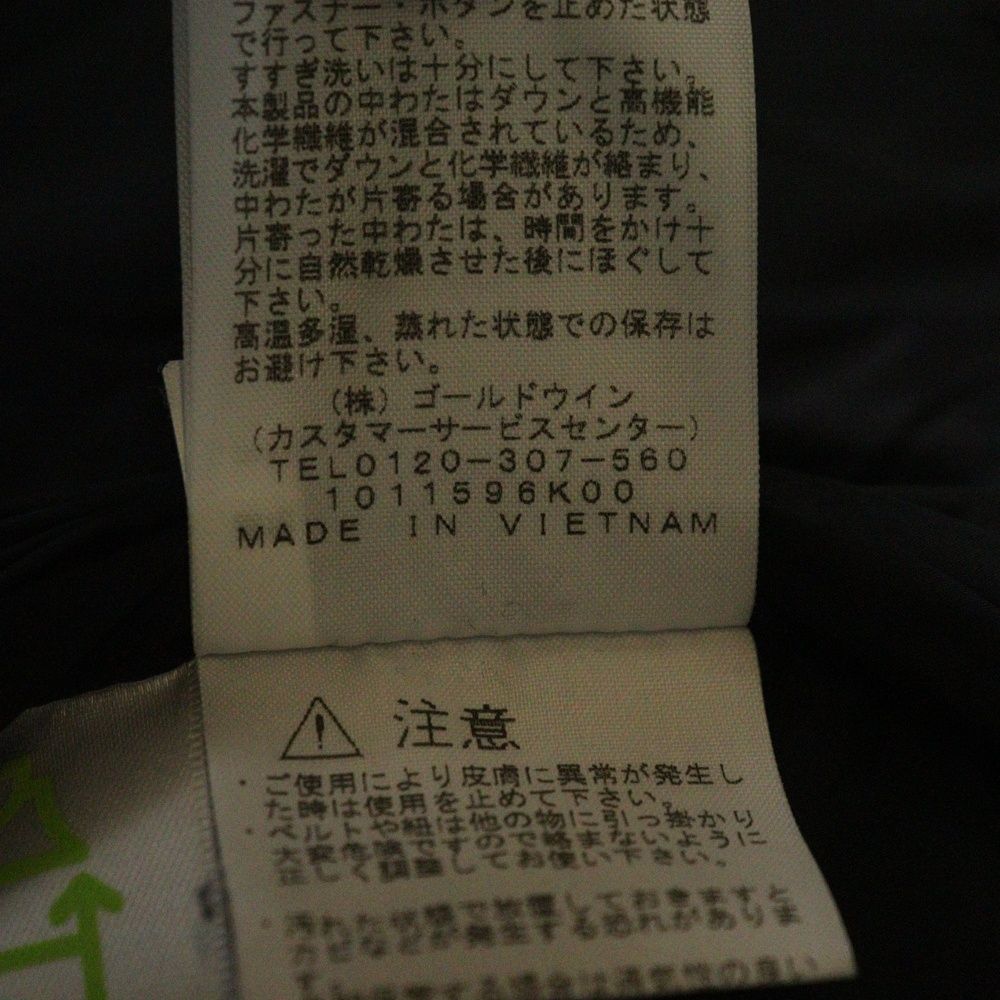 ファスナー・ボタンを止めた状態
で行って下さい。
すすぎ洗いは十分にして下さい。
本製品の中わたはダウンと高機能
化学繊維が混合されているため、
洗濯でダウンと化学繊維が絡まり、
中わたが片寄る場合があります。
片寄った中わたは、時間をかけ十
分に自然乾燥させた後にほぐして
下さい。
高温多湿、蒸れた状態での保存は
お避け下さい。
(株)ゴールドウイン
(カスタマーサービスセンター)
TEL0120-307-560
1011596K00
MADE IN VIETNAM
注意
・ご使用により皮膚に異常が発生し
た時は使用を止めて下さい。
・ベルトや紐は他の物に引っ掛かり
大変危険ですので絡まないように
正しく調整してお使い下さい。
・汚れた状態で放置しておきますと
カビなどが発生する恐れがありま
す。
する場合は通気性の良い